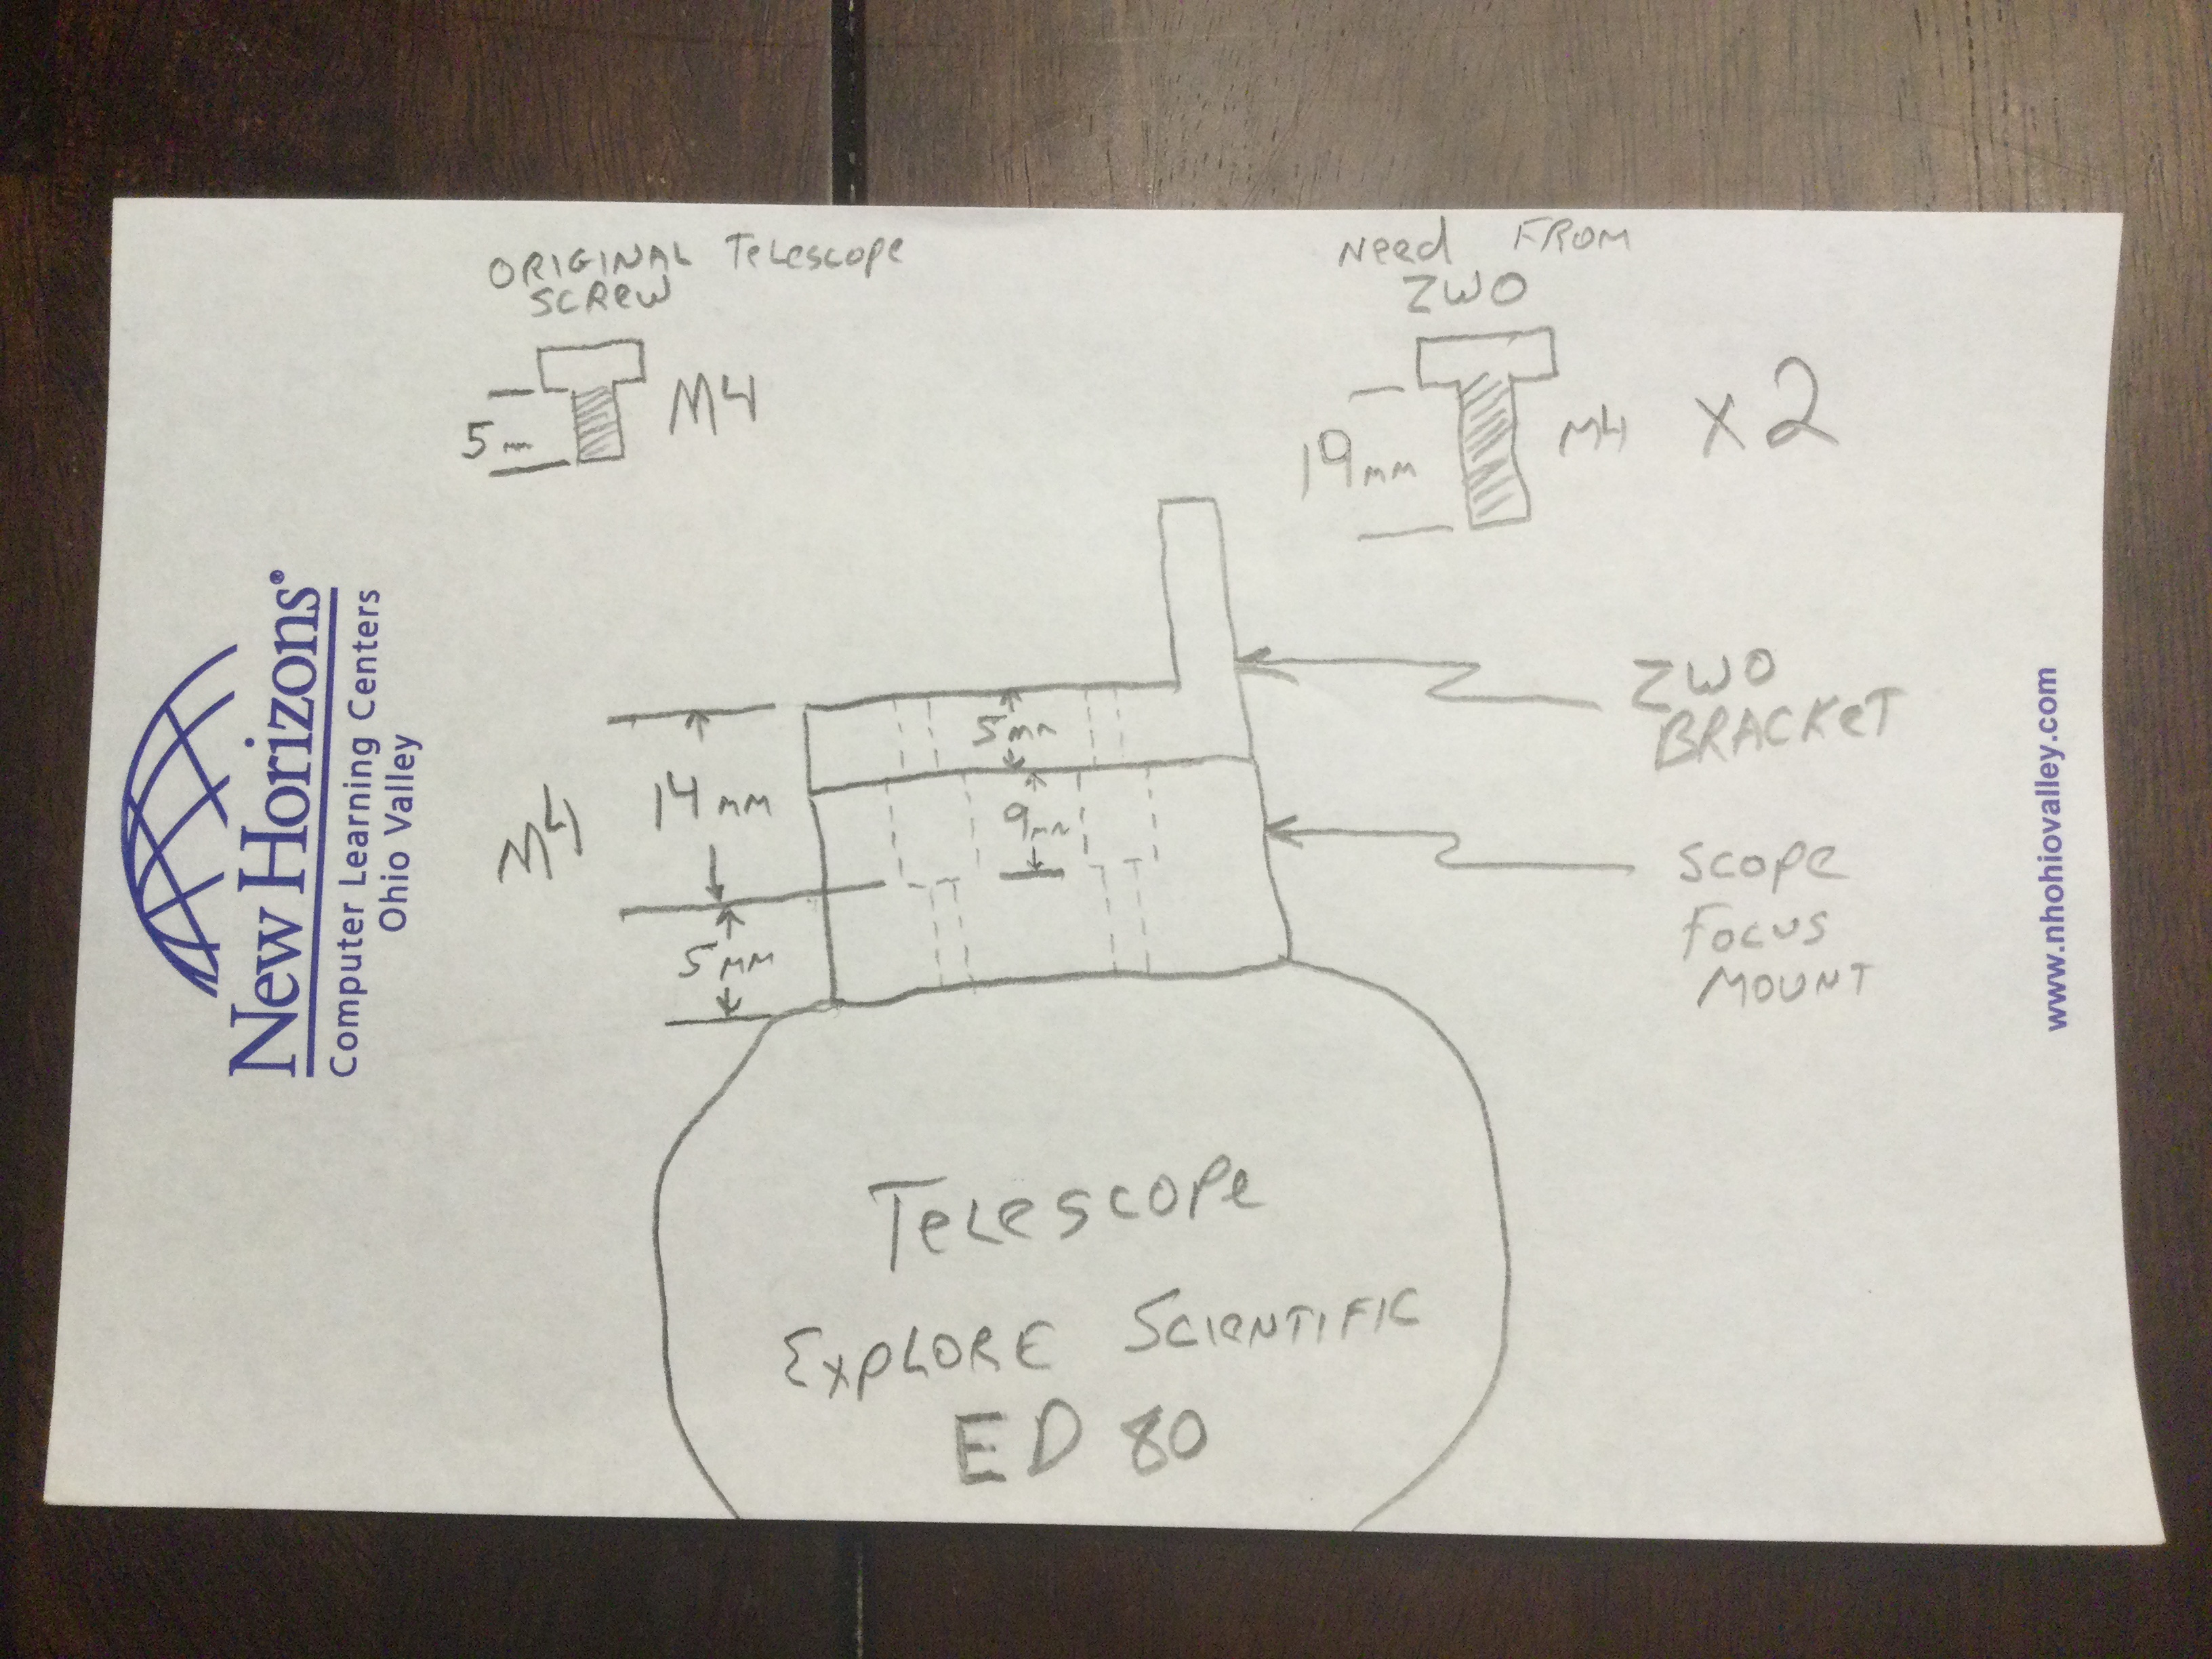 ORIGINAL Telescope
SCREW
5mm
M4
Need FROM
ZWO
19mm
M4
x2
ZWO
BRACKET
5mm
14mm
M4
9mm
5mm
Scope
Focus
MOUNT
Telescope
EXPLORE SCIENTIFIC
ED 80
New Horizons®
Computer Learning Centers
Ohio Valley
www.nhohiovalley.com